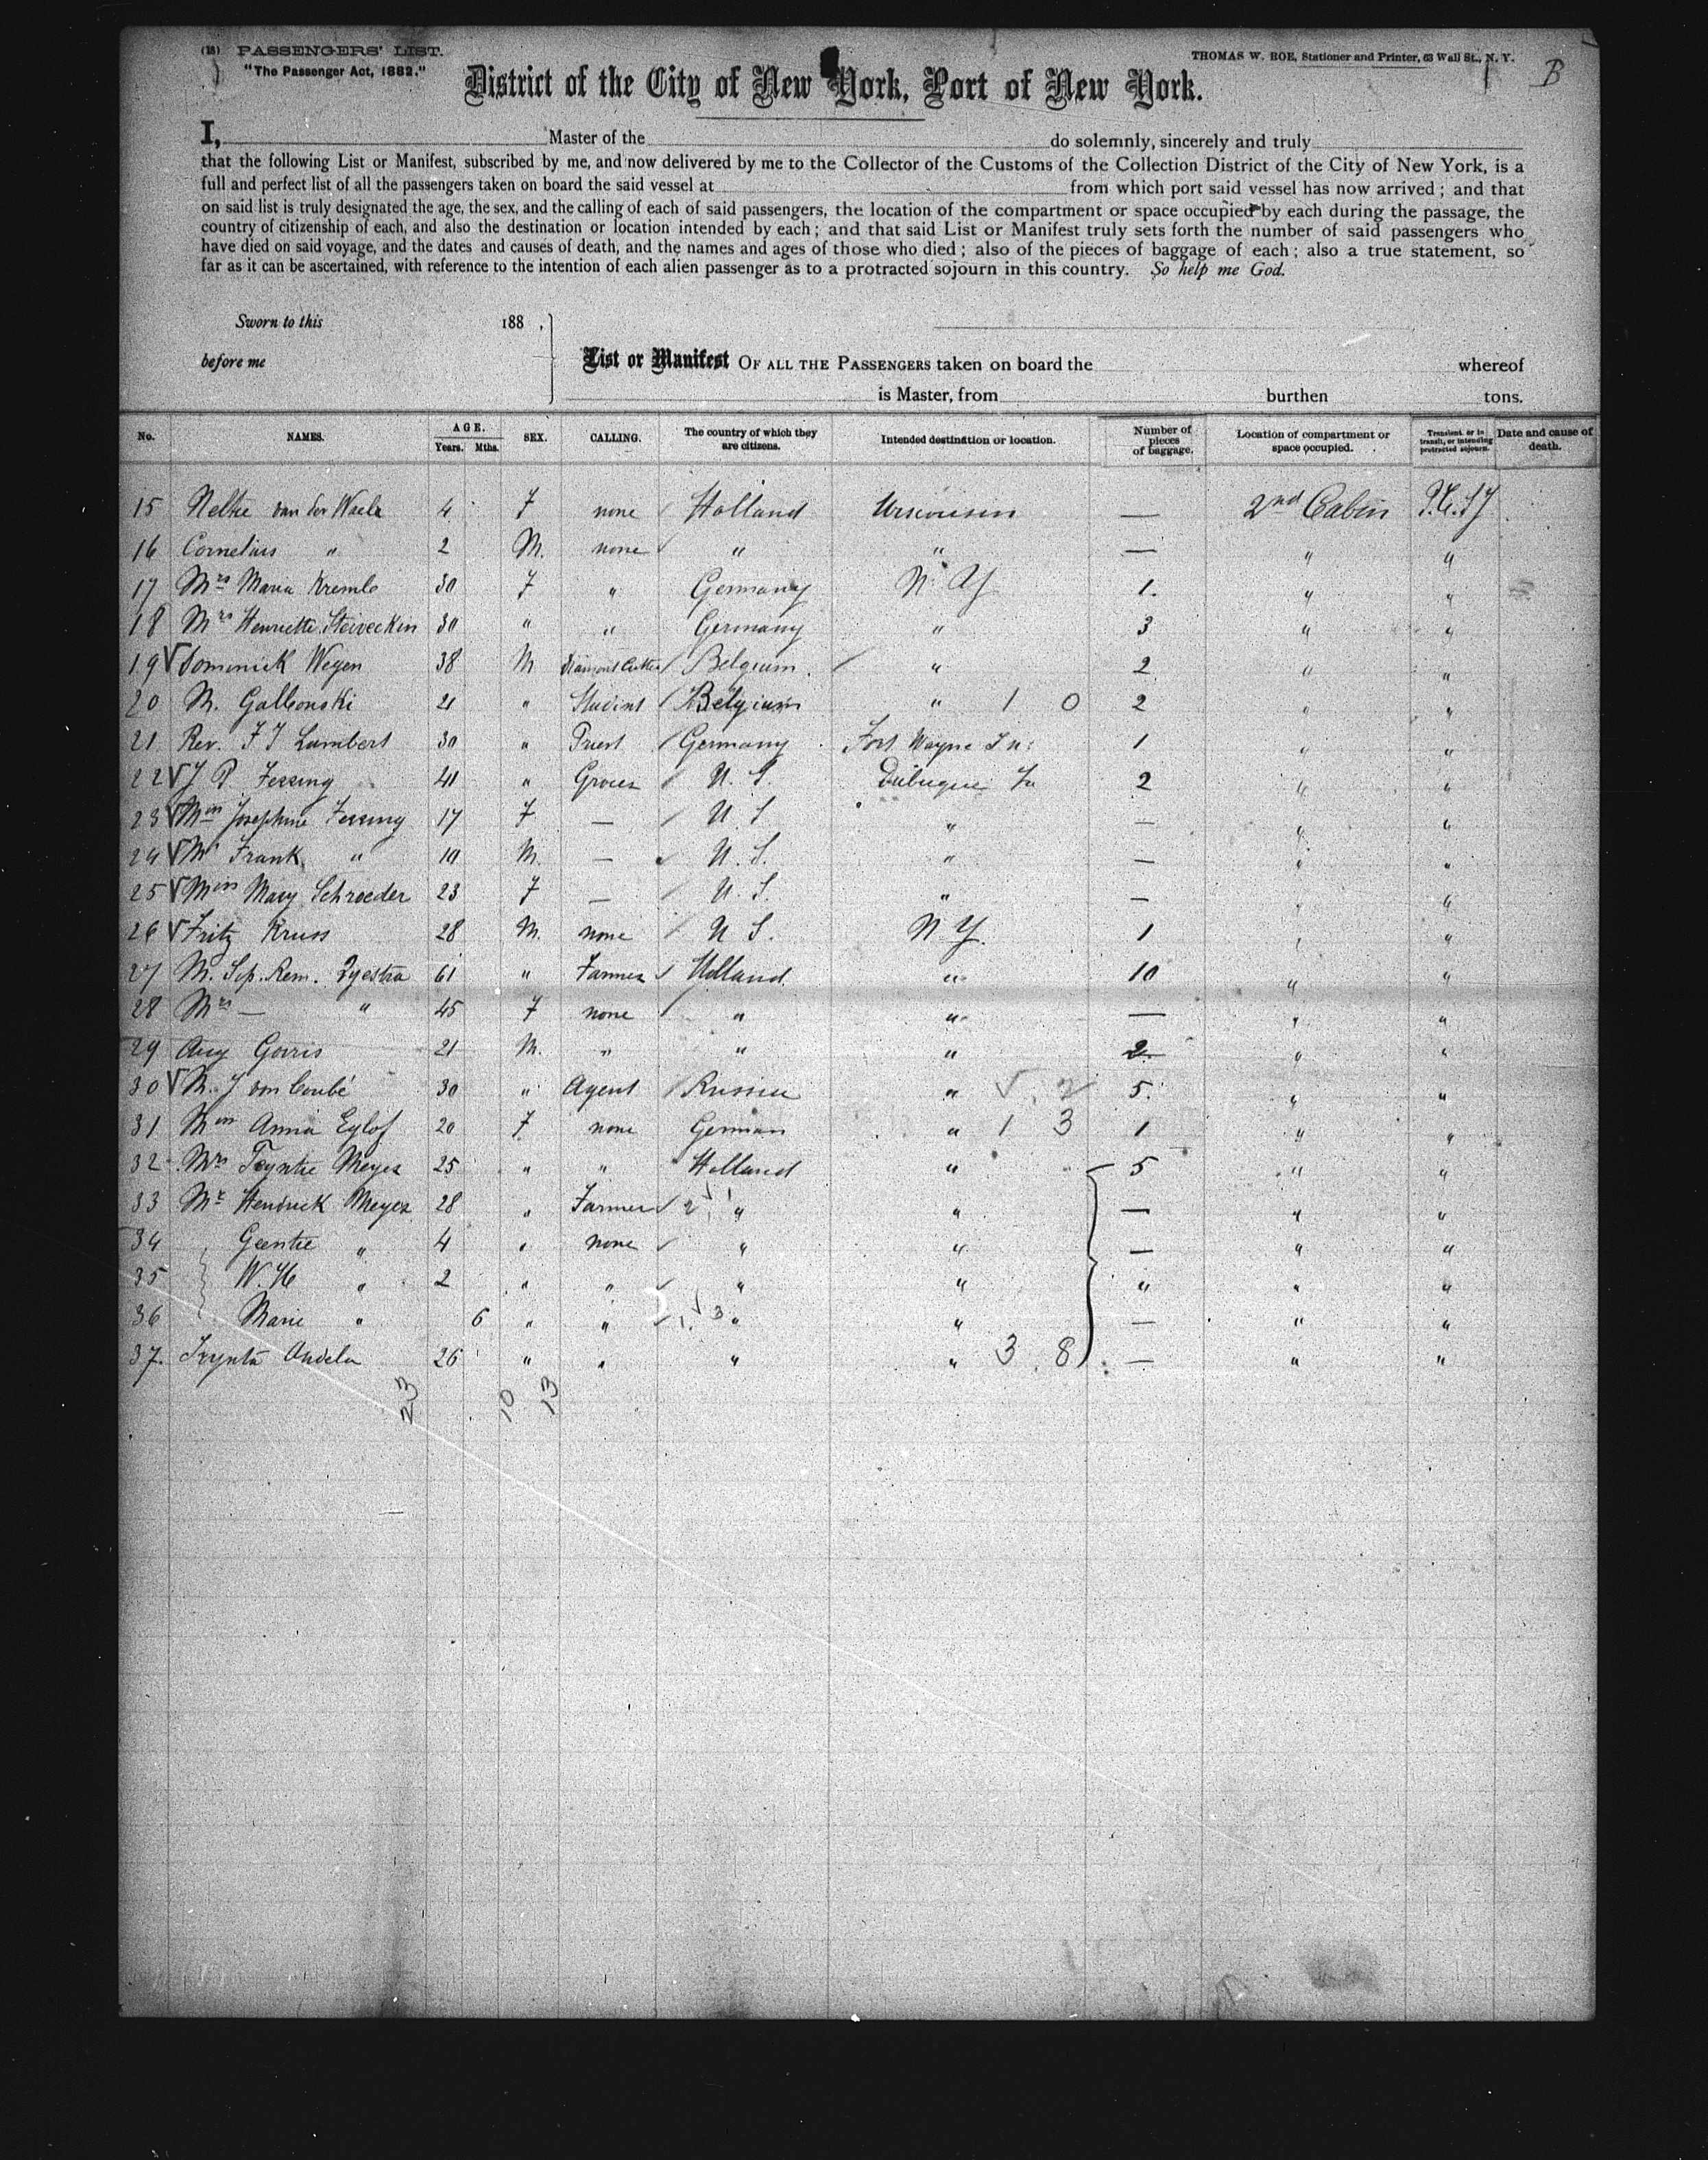 (18) PASSENGERS' LIST.
"The Passenger Act, 1882."
THOMAS W. ROE, Stationer and Printer, 63 Wall St., N. Y.
B
District of the City of New York, Port of New York.
I, Master of the do solemnly, sincerely and truly
that the following List or Manifest, subscribed by me, and now delivered by me to the Collector of the Customs of the Collection District of the City of New York, is a
full and perfect list of all the passengers taken on board the said vessel at from which port said vessel has now arrived; and that
on said list is truly designated the age, the sex, and the calling of each of said passengers, the location of the compartment or space occupied by each during the passage, the
country of citizenship of each, and also the destination or location intended by each; and that said List or Manifest truly sets forth the number of said passengers who
have died on said voyage, and the dates and causes of death, and the names and ages of those who died; also of the pieces of baggage of each; also a true statement, so
far as it can be ascertained, with reference to the intention of each alien passenger as to a protracted sojourn in this country. So help me God.
Sworn to this 188 .
before me
List or Manifest OF ALL THE PASSENGERS taken on board the whereof
is Master, from burthen tons.
No. NAMES. AGE. Years. Mths. SEX. CALLING. The country of which they are citizens. Intended destination or location. Number of pieces of baggage. Location of compartment or space occupied. Transient or in transit, or intending protracted sojourn. Date and cause of death.
15 Neltie van der Waele 4 F none Holland Wisconsin — 2nd Cabin
16 Cornelius " 2 M. none " " — " "
17 Mrs Maria 30 F " Germany N. Y 1. " "
18 Mrs Henriette 30 " " Germany " 3 " "
19 Dominick Wegen 38 M Diamont Cutter Belgium. " 2 " "
20 M. 21 " Student Belgium " 1 0 2 " "
21 Rev. F J Lambert 30 " Priest Germany Fort Wayne In: 1 " "
22 J P. Fessing 41 " Grocer U. S. Dubuque Ia 2 " "
23 Miss Josephine Fessing 17 F — U. S " — " "
24 Mr Frank " 19 M. — U. S. " — " "
25 Miss Mary Schroeder 23 F — U. S. " — " "
26 Fritz Kruss 28 M. none U S. N Y. 1 " "
27 M. Sip. Rem. 61 " Farmer Holland. " 10 " "
28 Mrs — " 45 F none " " — " "
29 Aug Gorris 21 M. " " " 2 " "
30 M. J von Coubé 30 " Agent Russia " 2 5. " "
31 Miss Anna Eylof 20 F none German " 1 3 1 " "
32 Mrs Tryntie Meyer 25 " " Holland " 5 " "
33 Mr Hendrick Meyer 28 " Farmer " " — " "
34 Geentie " 4 " none " " — " "
35 W. H " 2 " " " " " " "
36 Marie " 6 " " 3 " " — " "
37. Tryntie Andela 26 " " " " 3 . 8 — " "
23 10 13